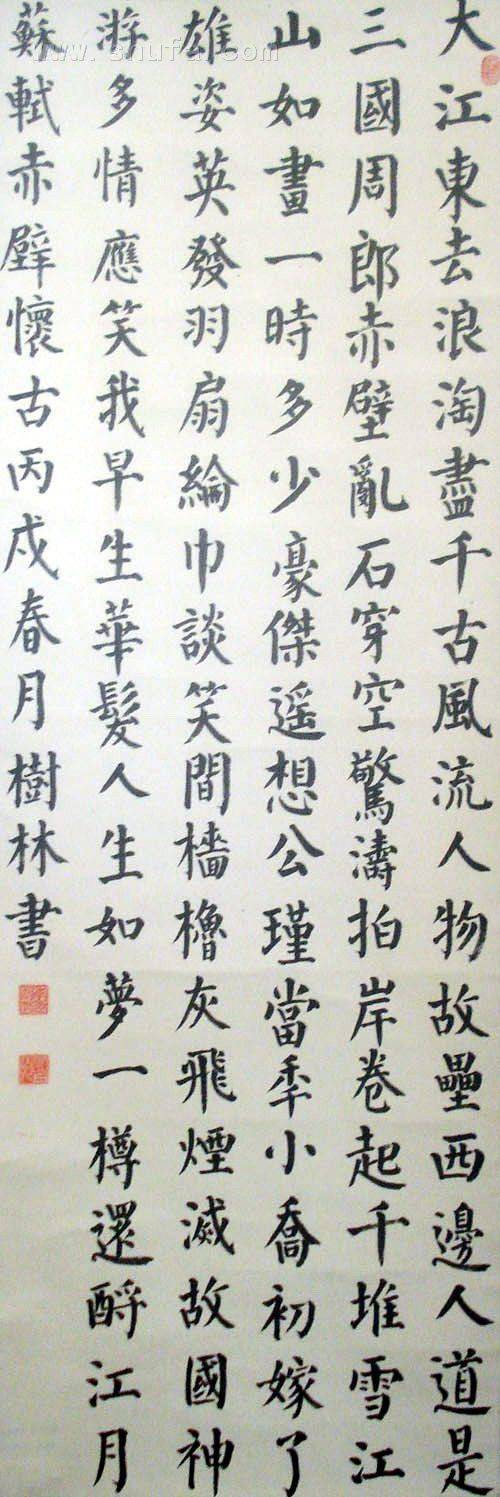 大江東去浪淘盡千古風流人物故壘西邊人道是
三國周郎赤壁亂石穿空驚濤拍岸卷起千堆雪江
山如畫一時多少豪傑遥想公瑾當季小喬初嫁了
雄姿英發羽扇綸巾談笑間檣櫓灰飛煙滅故國神
游多情應笑我早生華髮人生如夢一樽還酹江月
蘇軾赤壁懷古丙戍春月樹林書